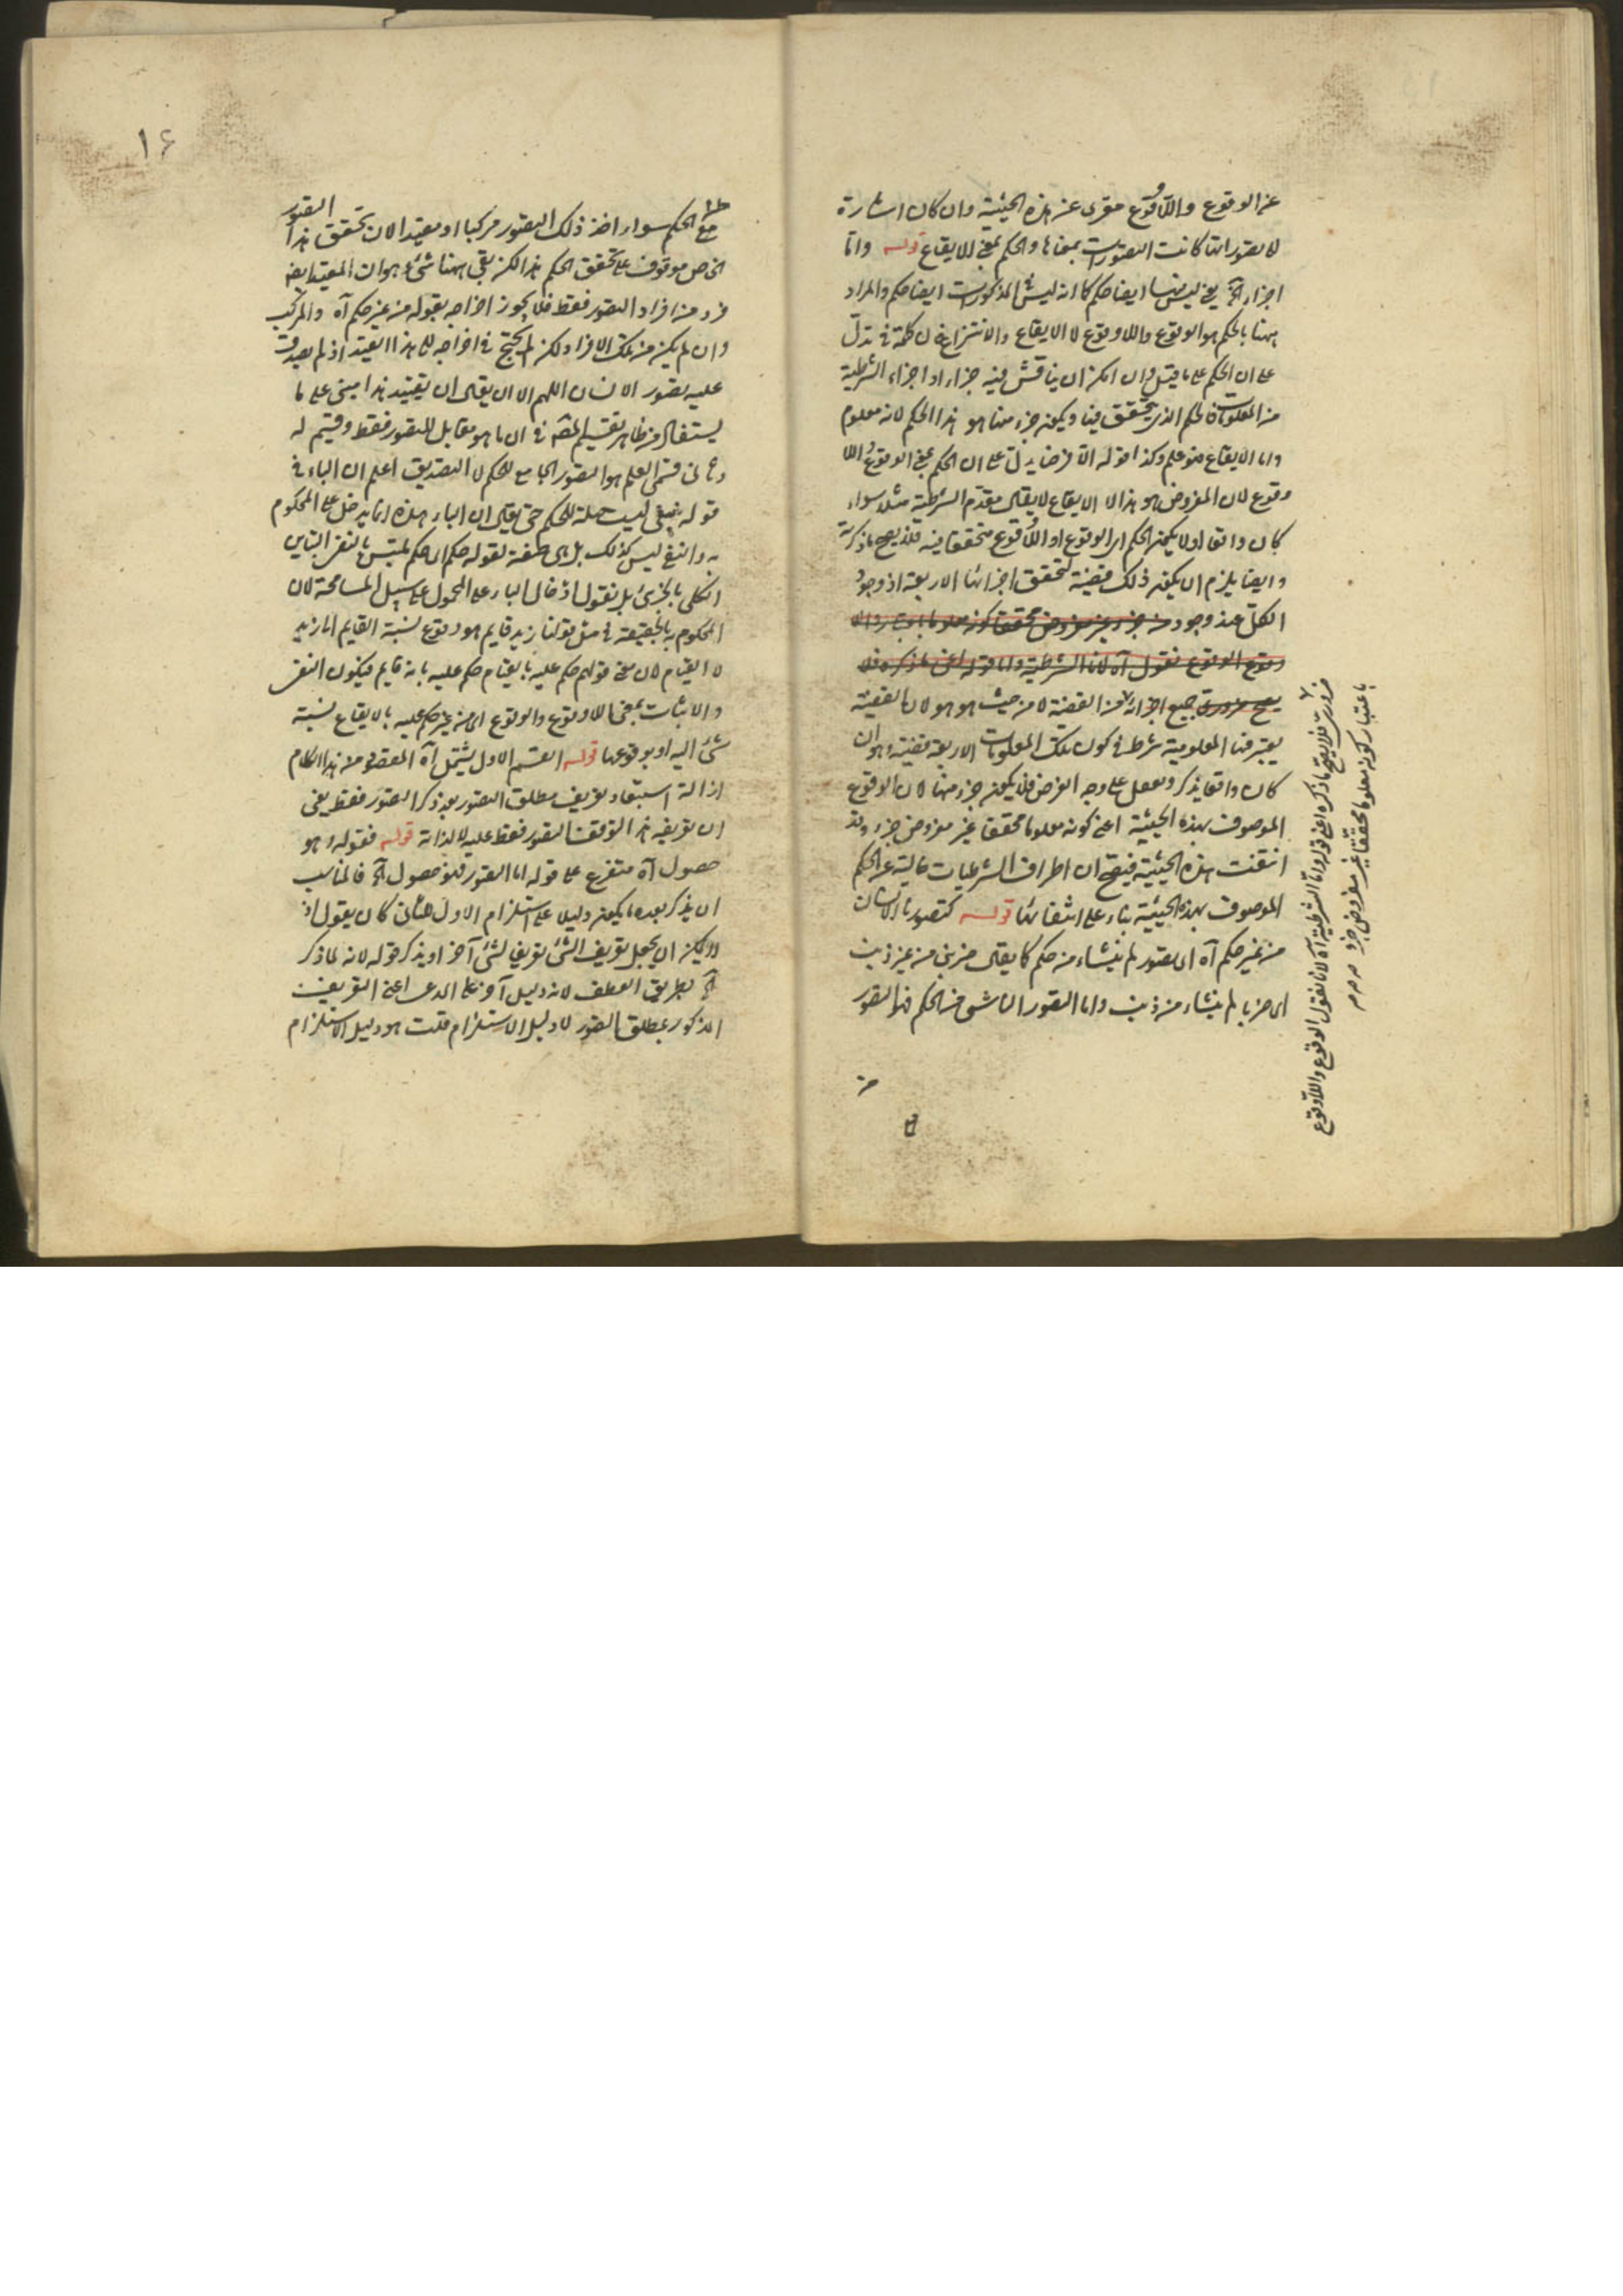 عن الوقوع واللاوقوع معرى عن هذه الحيثية وان كان اشارة
لا تصوراتها كانت التصورات بمعناها والحكم بمعنى الايقاع قوله واما
اجزاء آه يعنى ليس منها ايضا حكم كما انه ليس المذكورات ايضا حكم والمراد
ههنا بالحكم هو الوقوع واللاوقوع لا الايقاع والانتزاع فان كلمة فى تدل
على ان الحكم على ما قيل وان امكن ان يناقش فيه جزاء او اجزاء الشرطية
من المعلومات فالحكم الذى يتحقق فيها ويكون جزء منها هو هذا الحكم لانه معلوم
واما الايقاع فهو علم وكذا قوله الا فرضا يدل على ان الحكم بمعنى الوقوع واللا
وقوع لان المفروض هو هذا لا الايقاع لا يقال مقدم الشرطية مثلا سواء
كان واقعا او لا يكون الحكم اى الوقوع او اللاوقوع متحققا فيه فلا يصح ما ذكرته
وايضا يلزم ان يكون ذلك قضية لتحقق اجزائها الاربعة اذ وجود
الكل عند وجود
جميع اجزائه من القضية لا من حيث هو هو لان القضية
يعتبر فيها المعلومية شرط فى كون تلك المعلومات الاربعة قضية وهو ان
كان واقعا يذكر ويعقل على وجه الفرض فلا يكون جزء منها لان الوقوع
الموصوف بهذه الحيثية اعنى كونه معلوما محققا غير مفروض جزء وقد
انتفت هذه الحيثية فيصح ان اطراف الشرطيات خالية عن الحكم
الموصوف بهذه الحيثية بناء على انتفائها قوله كتصورنا الانسان
من غير حكم آه اى تصور لم ينشاء منه حكم كما يقال ضربنى من غير ذنب
اى ضربا لم ينشاء من ذنب واما التصور الناشى من الحكم فهو التصور
ضرورى فلا يصح ما ذكره اعنى قوله واما الشرطية آه لانا نقول الوقوع واللاوقوع
باعتبار كونه معلوما محققا غير مفروض جزء
١٤
مع الحكم سواء اخذ ذلك التصور مركبا او مقيدا لان تحقق هذا التصور
الخاص موقوف على تحقق الحكم هذا لكن بقى ههنا شئ وهو ان المقيد ايضا
فرد من افراد التصور فقط فلا يجوز اخراجه بقوله من غير حكم آه والمركب
وان لم يكن من تلك الافراد لكن لم يحتج فى اخراجه الى هذا التقييد اذ لم يصدق
عليه تصور الانسان اللهم الا ان يقال ان تقييد هذا مبنى على ما
يستفاد من ظاهر تقسيم المصـ فى ان ما هو مقابل للتصور فقط وقسيم له
وثانى قسمى العلم هو التصور الجامع للحكم لا التصديق اعلم ان الباء فى
قوله بنفى ليست صلة للحكم حتى يقال ان الباء هذه انما يدخل على المحكوم
به والنفى ليس كذلك بل هى صفة لقوله حكم اى حكم ملتبس بالنفى التباس
الكلى بالجزئ بل نقول ادخال الباء على المحمول على سبيل المسامحة لان
المحكوم به بالحقيقة فى مثل قولنا زيد قايم هو وقوع نسبة القايم الى زيد
لا القيام لان معنى قولهم حكم عليه بالقيام حكم عليه بانه قايم فيكون النفى
والاثبات بمعنى اللاوقوع والوقوع اى من غير حكم عليه بالايقاع نسبة
شئ اليه او بوقوعها قوله القسم الاول يشتمل آه المقصود من هذا الكلام
ازالة استبعاد تعريف مطلق التصور بعد ذكر التصور فقط يعنى
ان تعريفه هنا لتوقف التصور فقط عليه لا لذاته قوله فقوله وهو
حصول آه متفرع على قوله اما التصور فهو حصول آه فالمناسب
ان يذكر بعده ما يكون دليلا على استلزام الاول للثانى كان يقول اذ
لا يمكن ان يجعل تعريف الشئ تعريفا لشئ آخر او يذكر قوله لانه لما ذكر
آه بطريق العطف لانه دليل آخر على المدعى اعنى التعريف
المذكور لمطلق التصور لا دليل الاستلزام قلت هو دليل الاستلزام